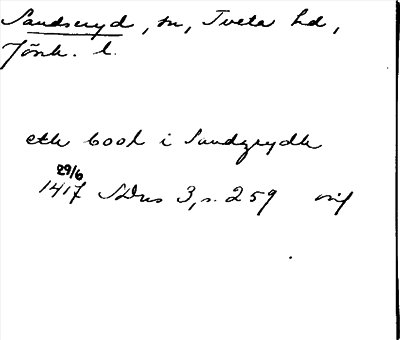 Sandseryd, sn, Tveta hd,
Jönk. l.
ett bool i Sandzrydh
29/6
1417 SDns 3, s. 259 orig